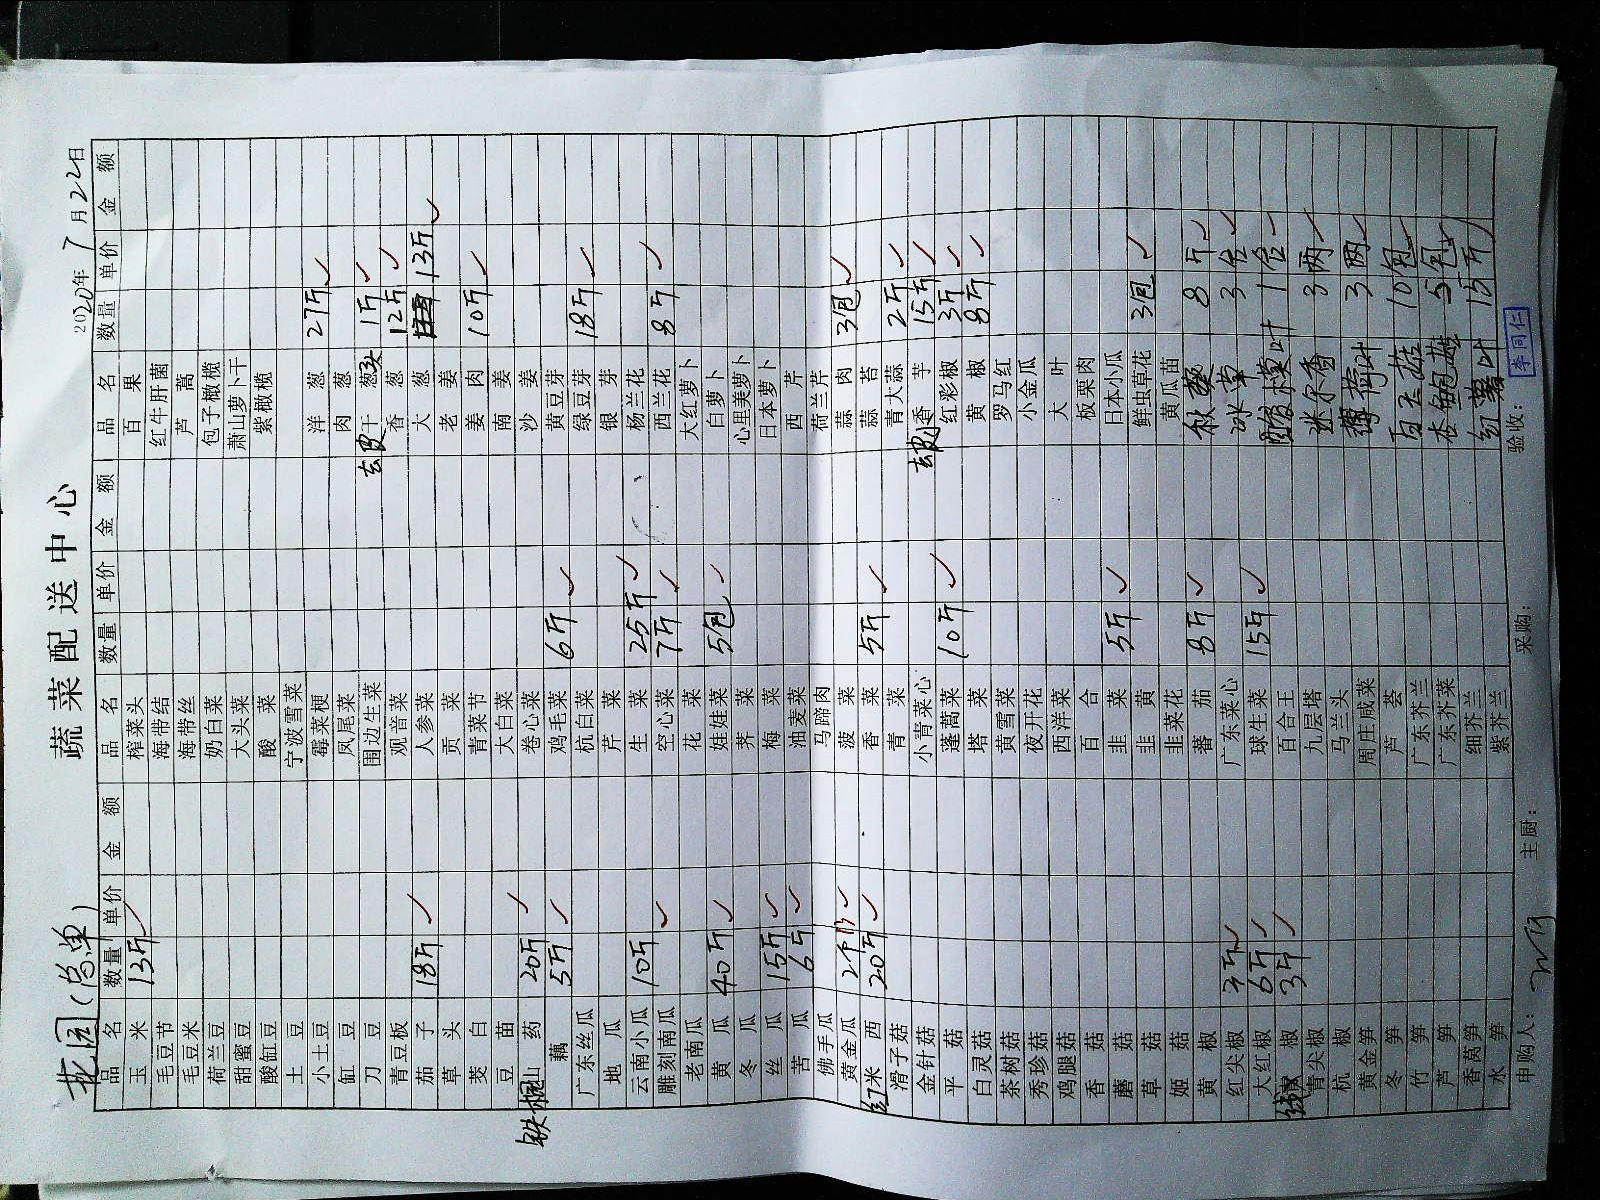 蔬菜配送中心
花园(总单) 2020年7月22日
品名 数量 单价 金额 品名 数量 单价 金额 品名 数量 单价 金额
玉米 13斤 榨菜头 百果
毛豆节 海带结 红牛肝菌
毛豆米 海带丝 芦蒿
荷兰豆 奶白菜 包子橄榄
甜蜜豆 大头菜 萧山萝卜干
酸缸豆 酸菜 紫橄榄
土豆 宁波雪菜
小土豆 霉菜梗 洋葱 27斤
缸豆 凤尾菜 肉葱
刀豆 围边生菜 去皮干葱头 1斤
青豆板 观音菜 香葱 12斤
茄子 18斤 人参菜 大葱 13斤
草头 贡菜 老姜
茭白 青菜节 姜肉 10斤
豆苗 大白菜 南姜
铁棍山药 20斤 卷心菜 沙姜
藕 5斤 鸡毛菜 6斤 黄豆芽
广东丝瓜 杭白菜 绿豆芽 18斤
地瓜 芹菜 银芽
云南小瓜 10斤 生菜 25斤 杨兰花
雕刻南瓜 空心菜 7斤 西兰花 8斤
老南瓜 花菜 大红萝卜
黄瓜 40斤 娃娃菜 5包 白萝卜
冬瓜 荠菜 心里美萝卜
丝瓜 15斤 梅菜 日本萝卜
苦瓜 6斤 油麦菜 西芹
佛手瓜 马蹄肉 荷兰芹
黄金瓜 2斤 菠菜 蒜肉 3包
红米西 20斤 香菜 5斤 蒜苔
滑子菇 青菜 青大蒜 2斤
金针菇 小青菜心 去皮小香芋 15斤
平菇 蓬蒿菜 10斤 红彩椒 3斤
白灵菇 塔菜 黄椒 8斤
茶树菇 黄雪菜 罗马红
秀珍菇 夜开花 小金瓜
鸡腿菇 西洋菜 大叶
香菇 百合 板栗肉
蘑菇 韭菜 5斤 日本小瓜
草菇 韭黄 鲜虫草花 3包
姬菇 韭菜花 黄瓜苗
黄椒 蕃茄 8斤 秋葵 8斤
红尖椒 3斤 广东菜心 冰草 3盒
大红椒 6斤 球生菜 15斤 酸模叶 1盒
线椒 3斤 百合王 迷尔香 3两
青尖椒 九层塔 薄荷叶 3两
杭椒 马兰头 百灵菇 10包
黄金笋 周庄咸菜 杏鲍菇 5包
冬笋 芦荟 红薯叶 15斤
竹笋 广东芥兰
芦笋 广东芥菜
香莴笋 细芥兰
水笋 紫芥兰
申购人: 主厨: 采购: 验收: 李同仁